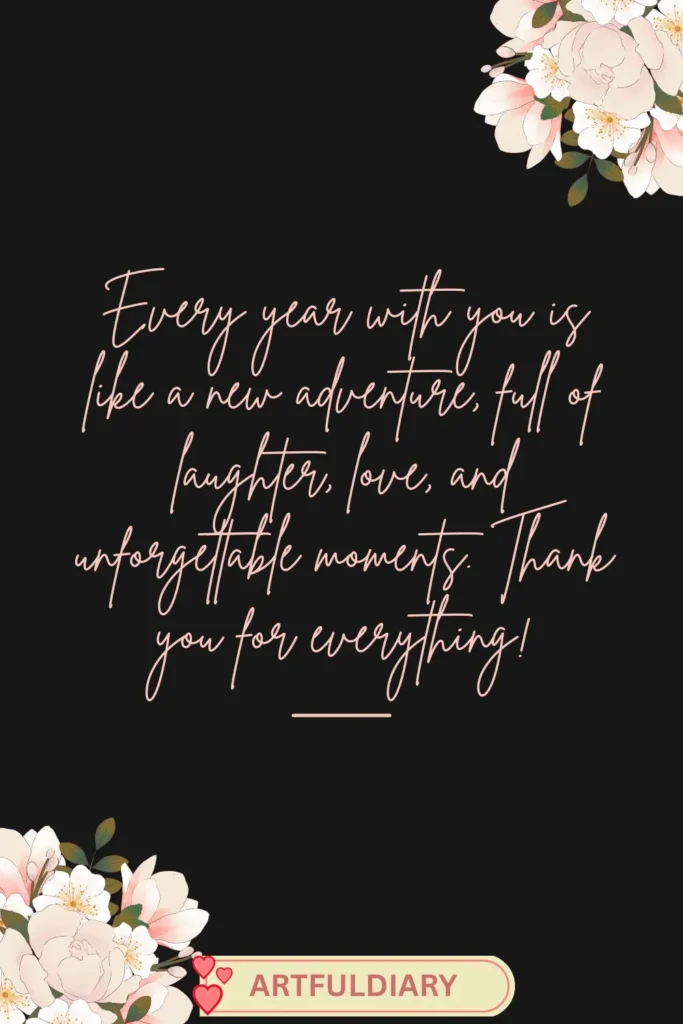 Every year with you is
like a new adventure, full of
laughter, love, and
unforgettable moments. Thank
you for everything!
ARTFULDIARY